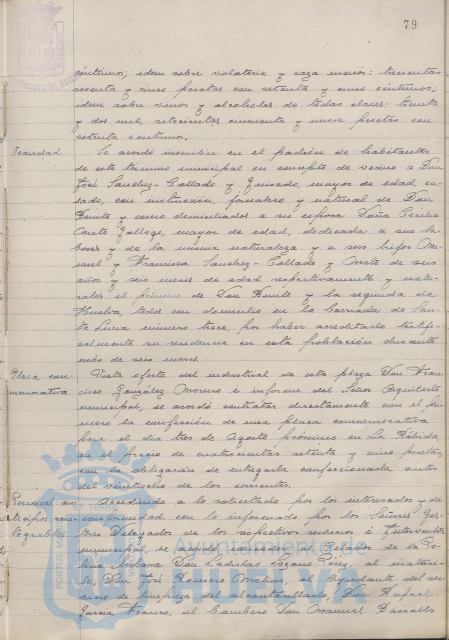 79
céntimos; idem sobre volatería y caza menor: trescientas
sesenta y cinco pesetas con setenta y cinco céntimos;
idem sobre vinos y alcoholes de todas clases: treinta
y dos mil, setecientas cincuenta y nueve pesetas con
setenta céntimos.
Vecindad Se acordó inscribir en el padrón de habitantes
de este término municipal en concepto de vecino a Don
José Sanchez-Collado y Quesado, mayor de edad, ca-
sado, con instrucción, jornalero y natural de Don
Benito y como domiciliados a su esposa Doña Cecilia
Nieto Gallego, mayor de edad, dedicada a sus la-
bores y de la misma naturaleza y a sus hijos Ma-
nuel y Francisca Sanchez-Collado y Nieto de seis
años y seis meses de edad respectivamente y natu-
rales el primero de Don Benito y la segunda de
Huelva, todos con domicilio en la barriada de San-
ta Lucia número trece, por haber acreditado testifi-
calmente su residencia en esta población durante
más de seis meses.
Placa con-
memorativa
Vista oferta del industrial de esta plaza Don Fran-
cisco González Moreno e informe del Señor Arquitecto
municipal, se acordó contratar directamente con el pri-
mero la confección de una placa conmemorativa
para el día tres de Agosto próximo en La Rábida
en el precio de cuatrocientas setenta y cinco pesetas,
con la obligación de entregarla confeccionada antes
del veintiocho de los corrientes.
Personal an-
ticipos rein-
tegrables
Accediendo a lo solicitado por los interesados y de
conformidad con lo informado por los Señores Ges-
tores Delegados de los respectivos servicios e Interventor
municipal, se acordó conceder al Celador de la Po-
licia Urbana Don Ladislao Lozano Perez, al matari-
fe, Don José Romero Molin, al Ayudante del ser-
vicio de limpieza del alcantarillado, Don Rafael
Garcia Franco, al Cambero Don Manuel Bascallo
Ayuntamiento de